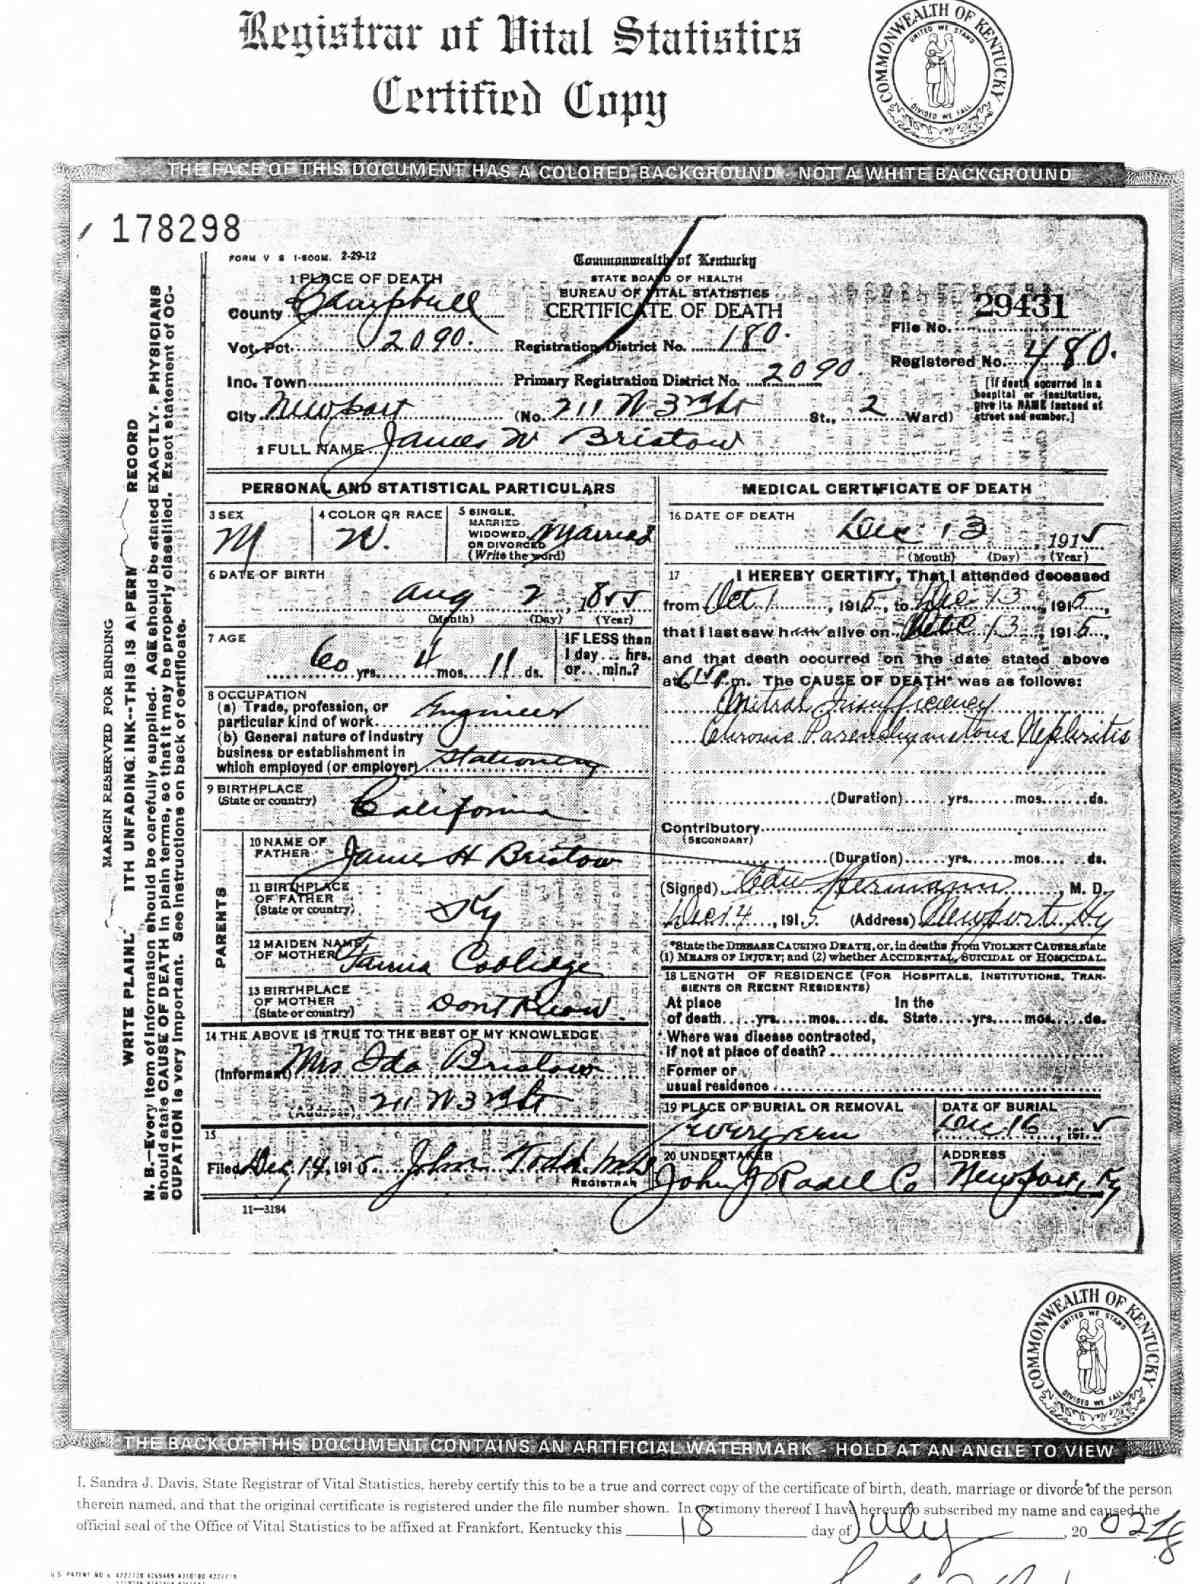 Registrar of Vital Statistics
Certified Copy
COMMONWEALTH OF KENTUCKY
UNITED WE STAND
DIVIDED WE FALL
THE FACE OF THIS DOCUMENT HAS A COLORED BACKGROUND - NOT A WHITE BACKGROUND
178298
MARGIN RESERVED FOR BINDING
WRITE PLAINL ITH UNFADING INK--THIS IS A PERM RECORD
N. B.—Every item of information should be carefully supplied. AGE should be stated EXACTLY. PHYSICIANS
should state CAUSE OF DEATH in plain terms, so that it may be properly classified. Exact statement of OC-
CUPATION is very important. See instructions on back of certificate.
FORM V S 1-500M. 2-29-12
Commonwealth of Kentucky
STATE BOARD OF HEALTH
BUREAU OF VITAL STATISTICS
CERTIFICATE OF DEATH
1 PLACE OF DEATH
County Campbell
File No. 29431
Vot. Pct. 2090. Registration District No. 180.
Registered No. 480.
Inc. Town Primary Registration District No. 2090.
City Newport (No. 211 W 3rd St St., 2 Ward)
[If death occurred in a
hospital or institution,
give its NAME instead of
street and number.]
2 FULL NAME James W Bristow
PERSONAL AND STATISTICAL PARTICULARS
3 SEX
M
4 COLOR OR RACE
W.
5 SINGLE,
MARRIED
WIDOWED,
OR DIVORCED
(Write the word)
Married
6 DATE OF BIRTH
Aug 2, 1855
(Month) (Day) (Year)
7 AGE
60 yrs. 4 mos. 11 ds.
IF LESS than
1 day... hrs.
or... min.?
8 OCCUPATION
(a) Trade, profession, or
particular kind of work Engineer
(b) General nature of industry
business or establishment in
which employed (or employer) Stationery
9 BIRTHPLACE
(State or country) California
PARENTS
10 NAME OF
FATHER James H Bristow
11 BIRTHPLACE
OF FATHER
(State or country) Ky
12 MAIDEN NAME
OF MOTHER Coolidge
13 BIRTHPLACE
OF MOTHER
(State or country) Dont Know
14 THE ABOVE IS TRUE TO THE BEST OF MY KNOWLEDGE
(Informant) Mrs Ida Bristow
(Address) 211 W 3rd St
15
Filed Dec 14, 1915 John Todd MD
REGISTRAR
11—3184
MEDICAL CERTIFICATE OF DEATH
16 DATE OF DEATH
Dec 13, 1915
(Month) (Day) (Year)
17 I HEREBY CERTIFY, That I attended deceased
from Oct 1, 1915, to Dec 13, 1915,
that I last saw h alive on Dec 13, 1915,
and that death occurred on the date stated above
at m. The CAUSE OF DEATH* was as follows:
Mitral Insufficiency
Chronic Parenchymatous Nephritis
(Duration) yrs. mos. ds.
Contributory
(SECONDARY)
(Duration) yrs. mos. ds.
(Signed) Edw Hermann, M. D.
Dec 14, 1915 (Address) Newport Ky
*State the DISEASE CAUSING DEATH, or, in deaths from VIOLENT CAUSES, state
(1) MEANS OF INJURY; and (2) whether ACCIDENTAL, SUICIDAL or HOMICIDAL.
18 LENGTH OF RESIDENCE (FOR HOSPITALS, INSTITUTIONS, TRAN-
SIENTS OR RECENT RESIDENTS)
At place In the
of death yrs. mos. ds. State yrs. mos. ds.
Where was disease contracted,
if not at place of death?
Former or
usual residence
19 PLACE OF BURIAL OR REMOVAL
Evergreen
DATE OF BURIAL
Dec 16, 1915
20 UNDERTAKER
John J Radel Co
ADDRESS
Newport, Ky
COMMONWEALTH OF KENTUCKY
UNITED WE STAND
DIVIDED WE FALL
THE BACK OF THIS DOCUMENT CONTAINS AN ARTIFICIAL WATERMARK - HOLD AT AN ANGLE TO VIEW
I, Sandra J. Davis, State Registrar of Vital Statistics, hereby certify this to be a true and correct copy of the certificate of birth, death, marriage or divorce of the person
therein named, and that the original certificate is registered under the file number shown. In testimony thereof I have hereunto subscribed my name and caused the
official seal of the Office of Vital Statistics to be affixed at Frankfort, Kentucky this 18 day of July, 20 02